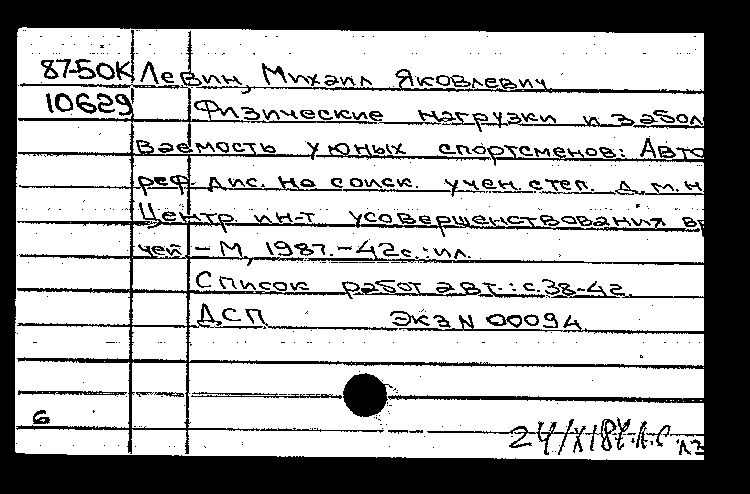 87-50К Левин, Михаил Яковлевич
10629 Физические нагрузки и забол
ваемость у юных спортсменов: Авто
реф. дис. на соиск. учен. степ. д.м.н
Центр. ин-т усовершенствования вр
чей - М, 1987. - 42с.: ил.
Список работ авт.: с.38-42.
ДСП Экз N 00094
6
24/X187.